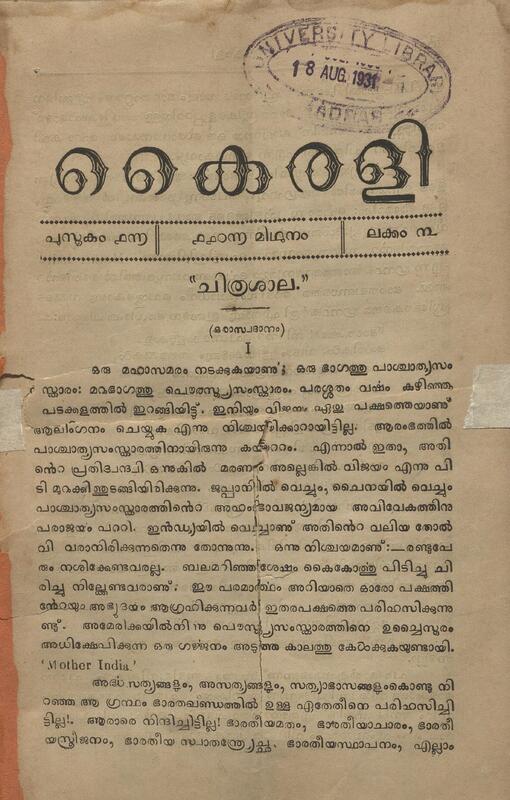 UNIVERSITY LIBRARY
18 AUG. 1931
MADRAS
കൈരളി
പുസ്തകം ൧൬
൧൧൦൬ മിഥുനം
ലക്കം ൯
"ചിത്രശാല."
(ഒരാസ്വാദനം)
I
ഒരു മഹാസമരം നടക്കുകയാണു്; ഒരു ഭാഗത്തു പാശ്ചാത്യസം
സ്ക്കാരം: മറുഭാഗത്തു പൌരസ്ത്യസംസ്ക്കാരം. പരശ്ശതം വഷം കഴിഞ്ഞു
പടക്കളത്തിൽ ഇറങ്ങിയിട്ട്. ഇനിയും വിജയം ഏതു പക്ഷത്തെയാണു്
ആലിംഗനം ചെയ്യുക എന്നു നിശ്ചയിക്കാറായിട്ടില്ല. ആരംഭത്തിൽ
പാശ്ചാത്യസംസ്ക്കാരത്തിനായിരുന്നു കയററം. എന്നാൽ ഇതാ, അതി
ൻെറ പ്രതിദ്വന്ദ്വി ഒന്നുകിൽ മരണം അല്ലെങ്കിൽ വിജയം എന്നു പി
ടി മുറുക്കിത്തുടങ്ങിയിരിക്കുന്നു. ജപ്പാനിൽ വെച്ചും, ചൈനയിൽ വെച്ചും
പാശ്ചാത്യസംസ്ക്കാരത്തിൻെറ അഹംഭാവജന്യമായ അവിവേകത്തിനു
പരാജയം പററി. ഇൻഡ്യയിൽ വെച്ചാണു് അതിൻെറ വലിയ തോൽ
വി വരാനിരിക്കുന്നതെന്നു തോന്നുന്നു. ഒന്നു നിശ്ചയമാണു്:—രണ്ടുപേ
രും നശിക്കേണ്ടവരല്ല. ബലമറിഞ്ഞശേഷം കൈകോത്തു പിടിച്ചു ചി
രിച്ചു നില്ക്കേണ്ടവരാണു്. ഈ പരമാത്ഥം അറിയാതെ ഓരോ പക്ഷത്തി
ൻേറയും അഭ്യുദയം ആഗ്രഹിക്കുന്നവർ ഇതരപക്ഷത്തെ പരിഹസിക്കുന്നു
ണ്ടു്. അമേരിക്കയിൽനിന്നു പൌരസ്ത്യസംസ്ക്കാരത്തിനെ ഉച്ചൈസ്തരം
അധിക്ഷേപിക്കുന്ന ഒരു ഗജ്ജനം അടുത്ത കാലത്തു കേൾക്കുകയുണ്ടായി.
'Mother India'
അർദ്ധസത്യങ്ങളും, അസത്യങ്ങളും, സത്യാഭാസങ്ങളുംകൊണ്ടു നി
റഞ്ഞ ആ ഗ്രന്ഥം ഭാരതഖണ്ഡത്തിൽ ഉള്ള ഏതേതിനെ പരിഹസിച്ചി
ട്ടില്ല!. ആരാരെ നിന്ദിച്ചിട്ടില്ല! ഭാരതീയമതം, ഭാരതീയാചാരം, ഭാരതീ
യസ്ത്രീജനം, ഭാരതീയ സ്വാതന്ത്ര്യേച്ഛ, ഭാരതീയസ്ഥാപനം, എല്ലാം